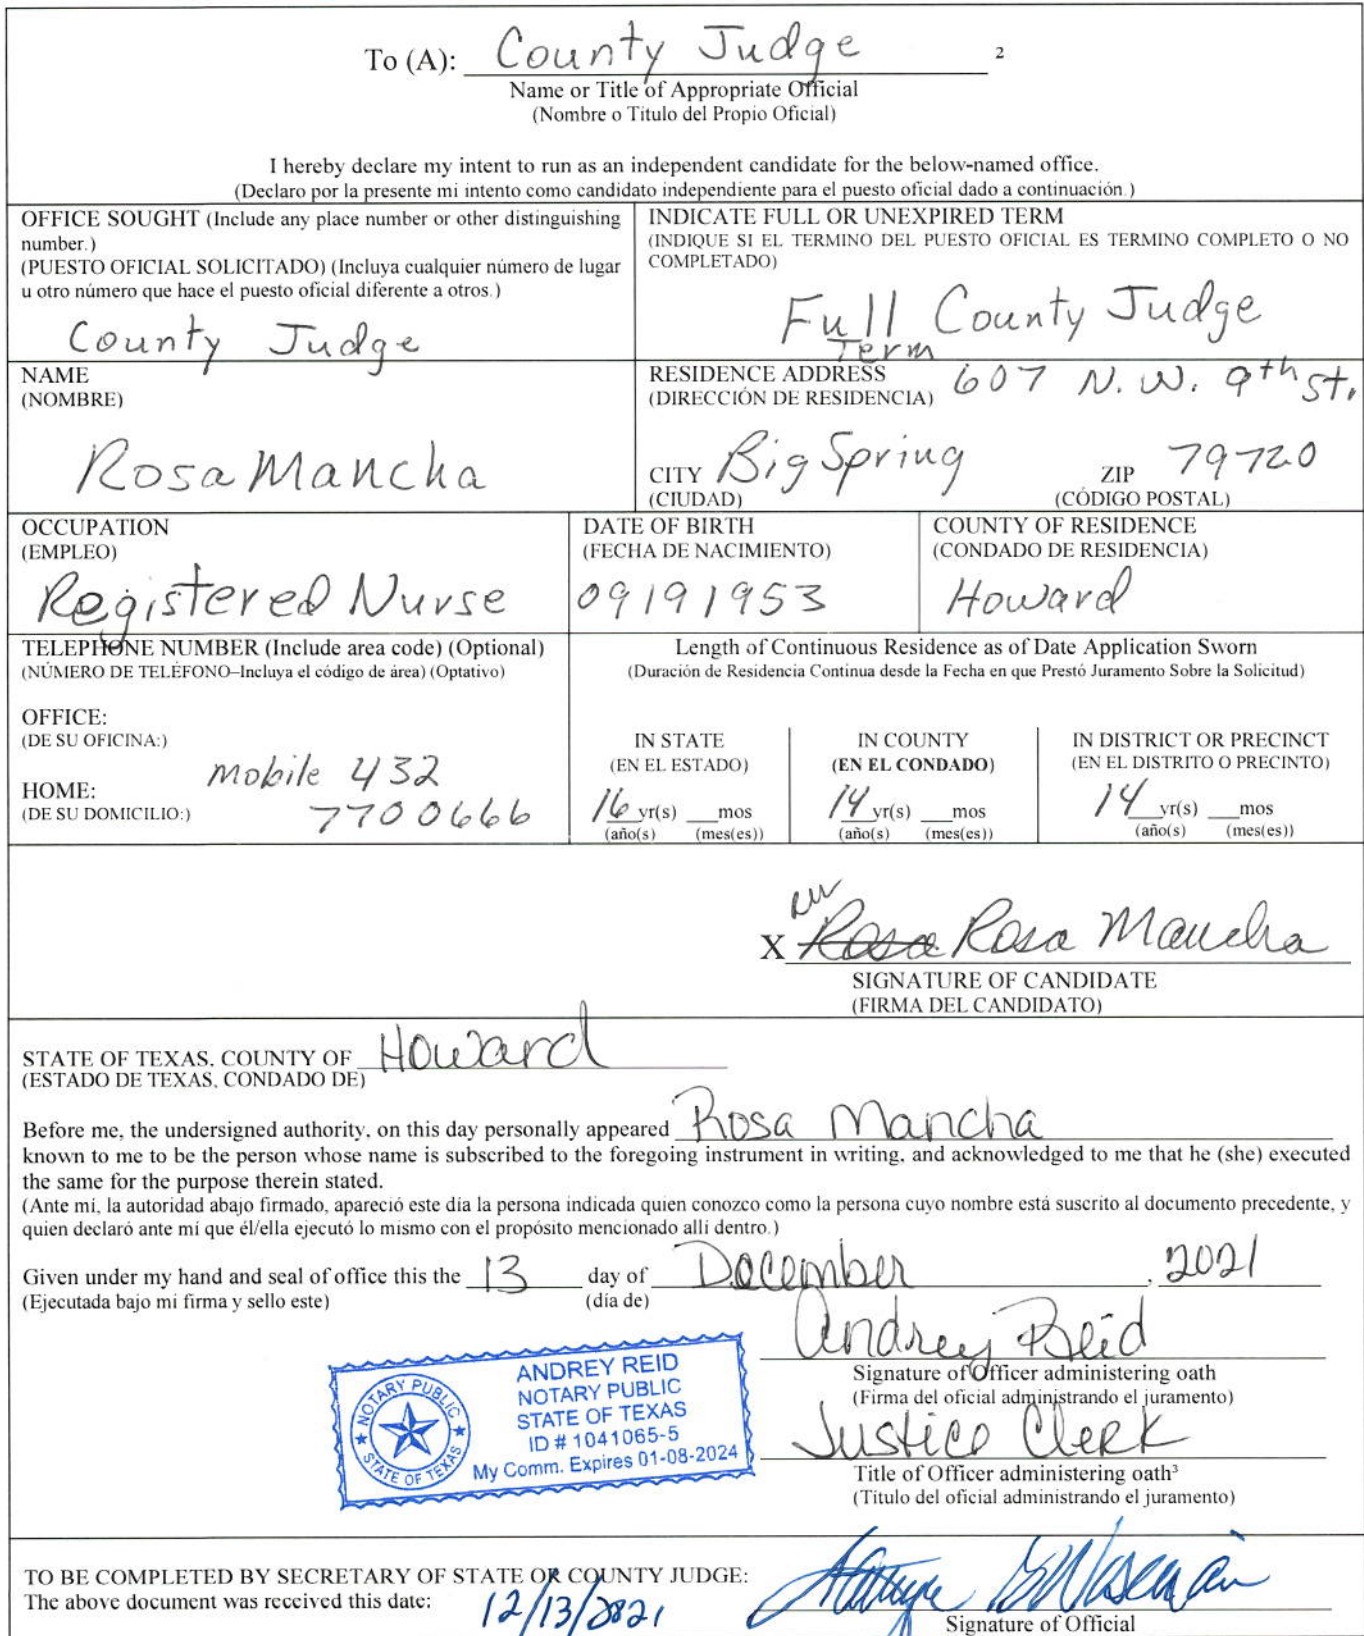 To (A): County Judge 2
Name or Title of Appropriate Official
(Nombre o Titulo del Propio Oficial)
I hereby declare my intent to run as an independent candidate for the below-named office.
(Declaro por la presente mi intento como candidato independiente para el puesto oficial dado a continuación.)
OFFICE SOUGHT (Include any place number or other distinguishing
number.)
(PUESTO OFICIAL SOLICITADO) (Incluya cualquier número de lugar
u otro número que hace el puesto oficial diferente a otros.)
County Judge
INDICATE FULL OR UNEXPIRED TERM
(INDIQUE SI EL TERMINO DEL PUESTO OFICIAL ES TERMINO COMPLETO O NO
COMPLETADO)
Full County Judge
Term
NAME
(NOMBRE)
Rosa Mancha
RESIDENCE ADDRESS 607 N.W. 9th St.
(DIRECCIÓN DE RESIDENCIA)
CITY Big Spring ZIP 79720
(CIUDAD) (CÓDIGO POSTAL)
OCCUPATION
(EMPLEO)
Registered Nurse
DATE OF BIRTH
(FECHA DE NACIMIENTO)
09191953
COUNTY OF RESIDENCE
(CONDADO DE RESIDENCIA)
Howard
TELEPHONE NUMBER (Include area code) (Optional)
(NÚMERO DE TELÉFONO–Incluya el código de área) (Optativo)
OFFICE:
(DE SU OFICINA:)
mobile 432
HOME:
(DE SU DOMICILIO:) 7700666
Length of Continuous Residence as of Date Application Sworn
(Duración de Residencia Continua desde la Fecha en que Prestó Juramento Sobre la Solicitud)
IN STATE
(EN EL ESTADO)
16 yr(s) __mos
(año(s) (mes(es))
IN COUNTY
(EN EL CONDADO)
14 yr(s) __mos
(año(s) (mes(es))
IN DISTRICT OR PRECINCT
(EN EL DISTRITO O PRECINTO)
14 yr(s) __mos
(año(s) (mes(es))
X Rosa Rosa Mancha
SIGNATURE OF CANDIDATE
(FIRMA DEL CANDIDATO)
STATE OF TEXAS, COUNTY OF Howard
(ESTADO DE TEXAS, CONDADO DE)
Before me, the undersigned authority, on this day personally appeared Rosa Mancha
known to me to be the person whose name is subscribed to the foregoing instrument in writing, and acknowledged to me that he (she) executed
the same for the purpose therein stated.
(Ante mi, la autoridad abajo firmado, apareció este día la persona indicada quien conozco como la persona cuyo nombre está suscrito al documento precedente, y
quien declaró ante mi que él/ella ejecutó lo mismo con el propósito mencionado alli dentro.)
Given under my hand and seal of office this the 13 day of December, 2021
(Ejecutada bajo mi firma y sello este) (día de)
Andrey Reid
Signature of Officer administering oath
(Firma del oficial administrando el juramento)
Justice Clerk
Title of Officer administering oath³
(Titulo del oficial administrando el juramento)
NOTARY PUBLIC
STATE OF TEXAS
ANDREY REID
NOTARY PUBLIC
STATE OF TEXAS
ID # 1041065-5
My Comm. Expires 01-08-2024
TO BE COMPLETED BY SECRETARY OF STATE OR COUNTY JUDGE:
The above document was received this date: 12/13/2021
Signature of Official